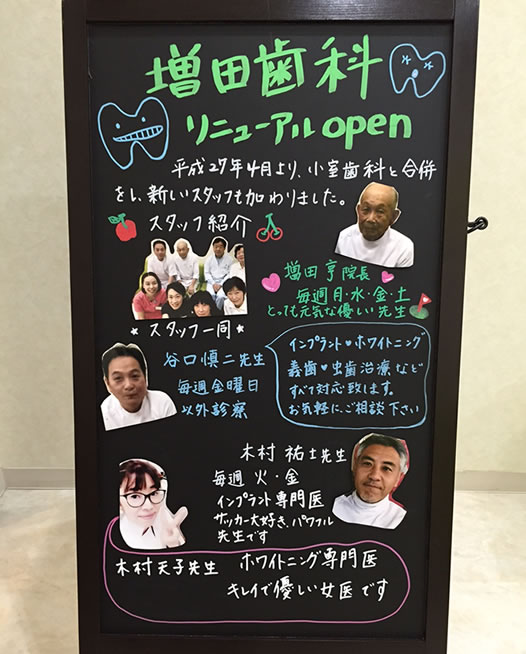 増田歯科
リニューアルopen
平成27年4月より、小室歯科と合併
をし、新しいスタッフも加わりました。
スタッフ紹介
★スタッフ一同★
増田亨院長
毎週月・水・金・土
とっても元気な優しい先生
谷口慎二先生
毎週金曜日
以外診察
インプラント♥ホワイトニング
義歯♥虫歯治療など
すべて対応致します。
お気軽にご相談下さい
木村祐士先生
毎週火・金
インプラント専門医
サッカー大好き、パワフル
先生です
木村天子先生 ホワイトニング専門医
キレイで優しい女医です